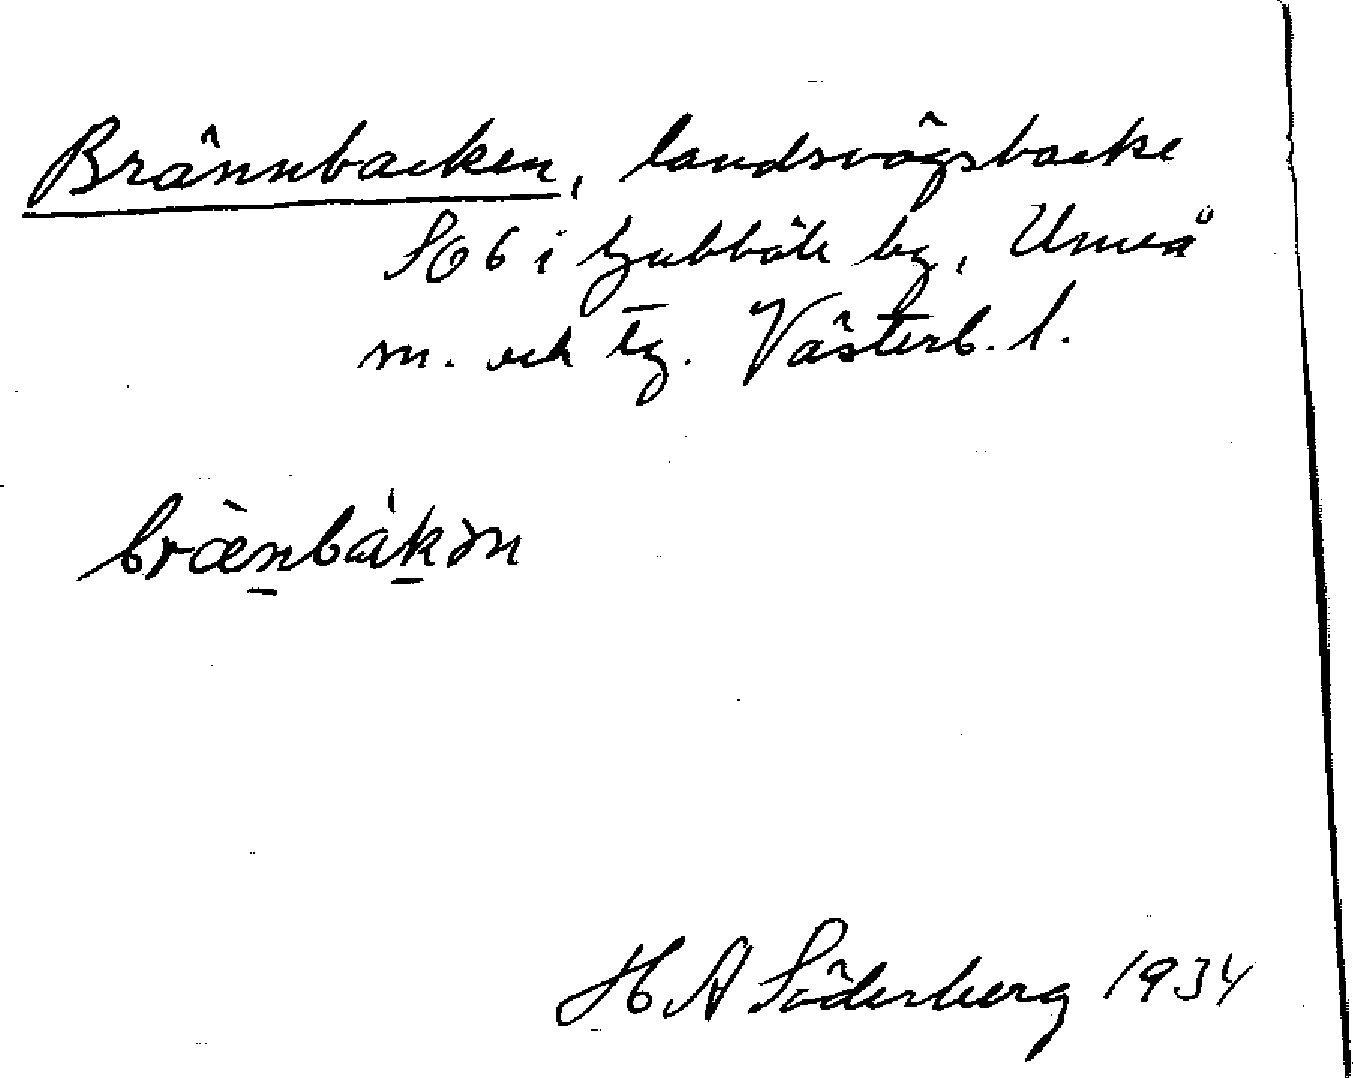 Brännbacken, landsvägsbacke
H 6 i Tjubböle by, Umeå
m. och tg. Västerb. l.
bræ̀nbákən
H A Söderberg 1934